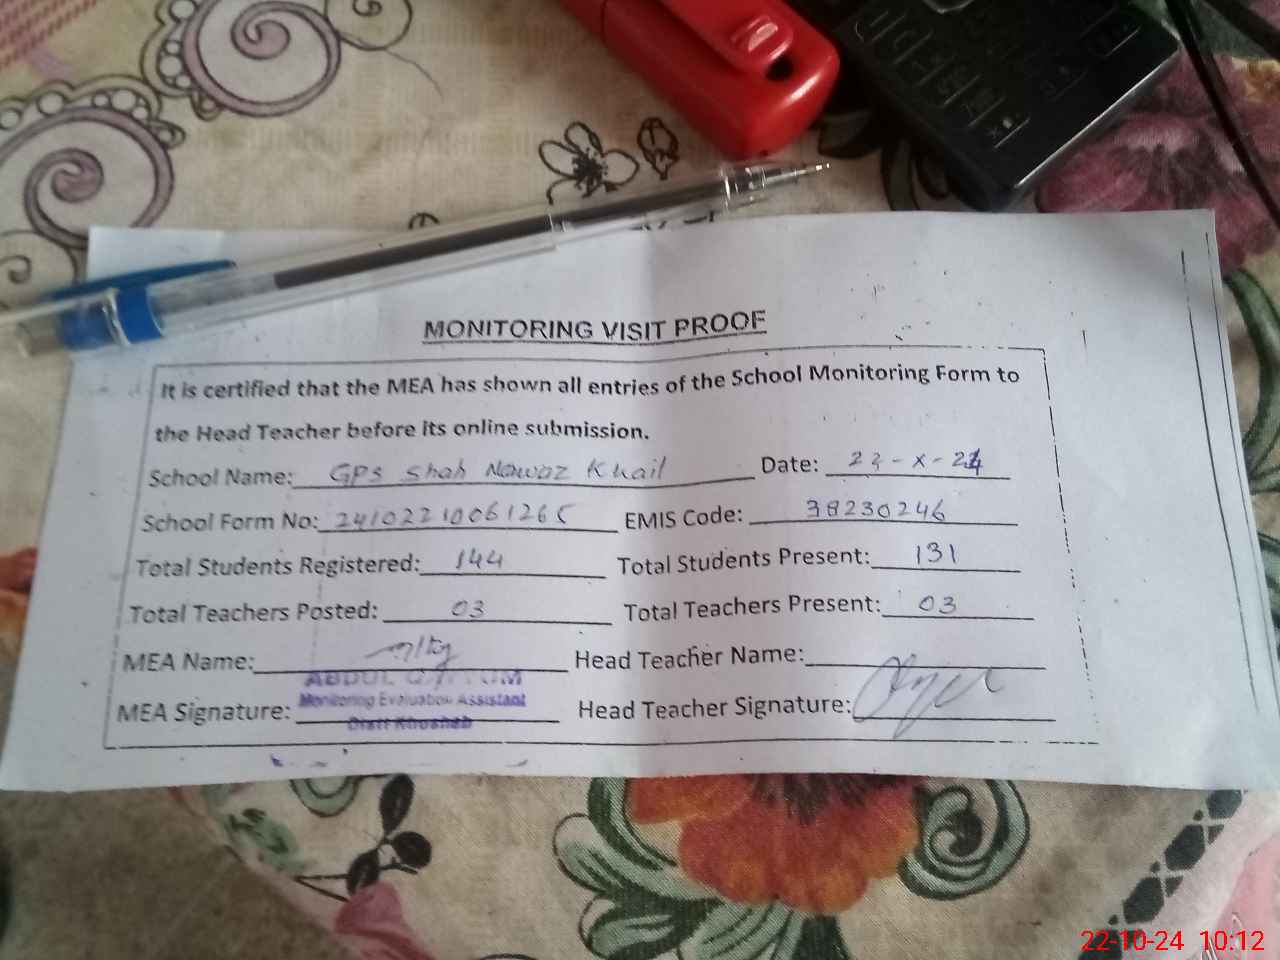 MONITORING VISIT PROOF
It is certified that the MEA has shown all entries of the School Monitoring Form to
the Head Teacher before its online submission.
School Name: GPS Shah Nawaz Khail Date: 22-X-24
School Form No: 24102210061265 EMIS Code: 38230246
Total Students Registered: 144 Total Students Present: 131
Total Teachers Posted: 03 Total Teachers Present: 03
MEA Name: Head Teacher Name:
ABDUL QAYYUM
Monitoring Evaluation Assistant
MEA Signature: Head Teacher Signature:
Distt Khushab
22-10-24 10:12